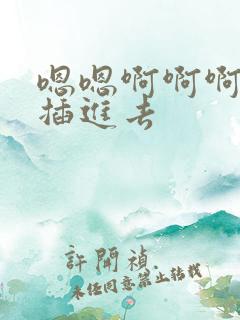 嗯嗯啊啊啊
插進去
許開禎
未经同意禁止转载